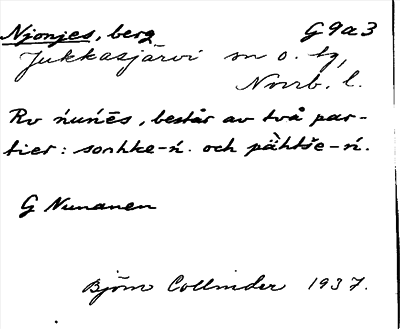 Njonjes, berg G9a3
Jukkasjärvi sn o. tg,
Norrb. l.
Rv ńuńēs, består av två par-
tier: sorhke-ń. och pä̀htše-ń.
G Nunanen
Björn Collinder 1937.